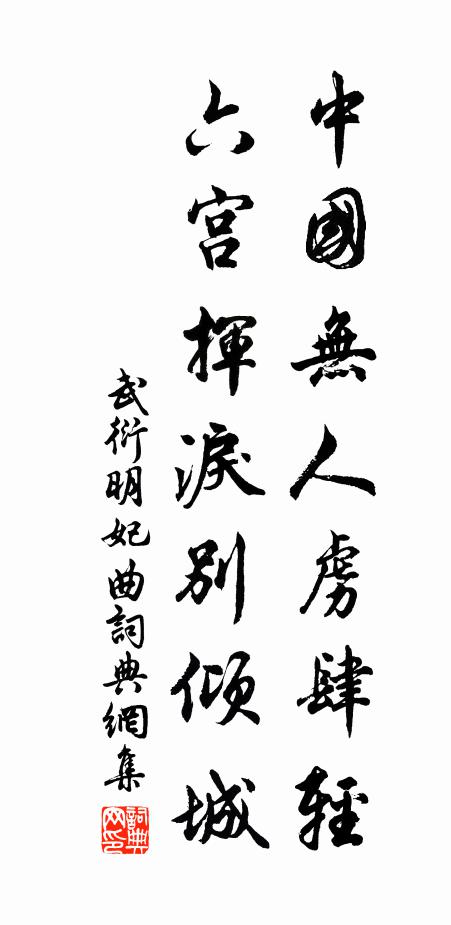 中國無人虜肆輕
六宮揮淚別傾城
武衍明妃曲詞典網集
詞典網印